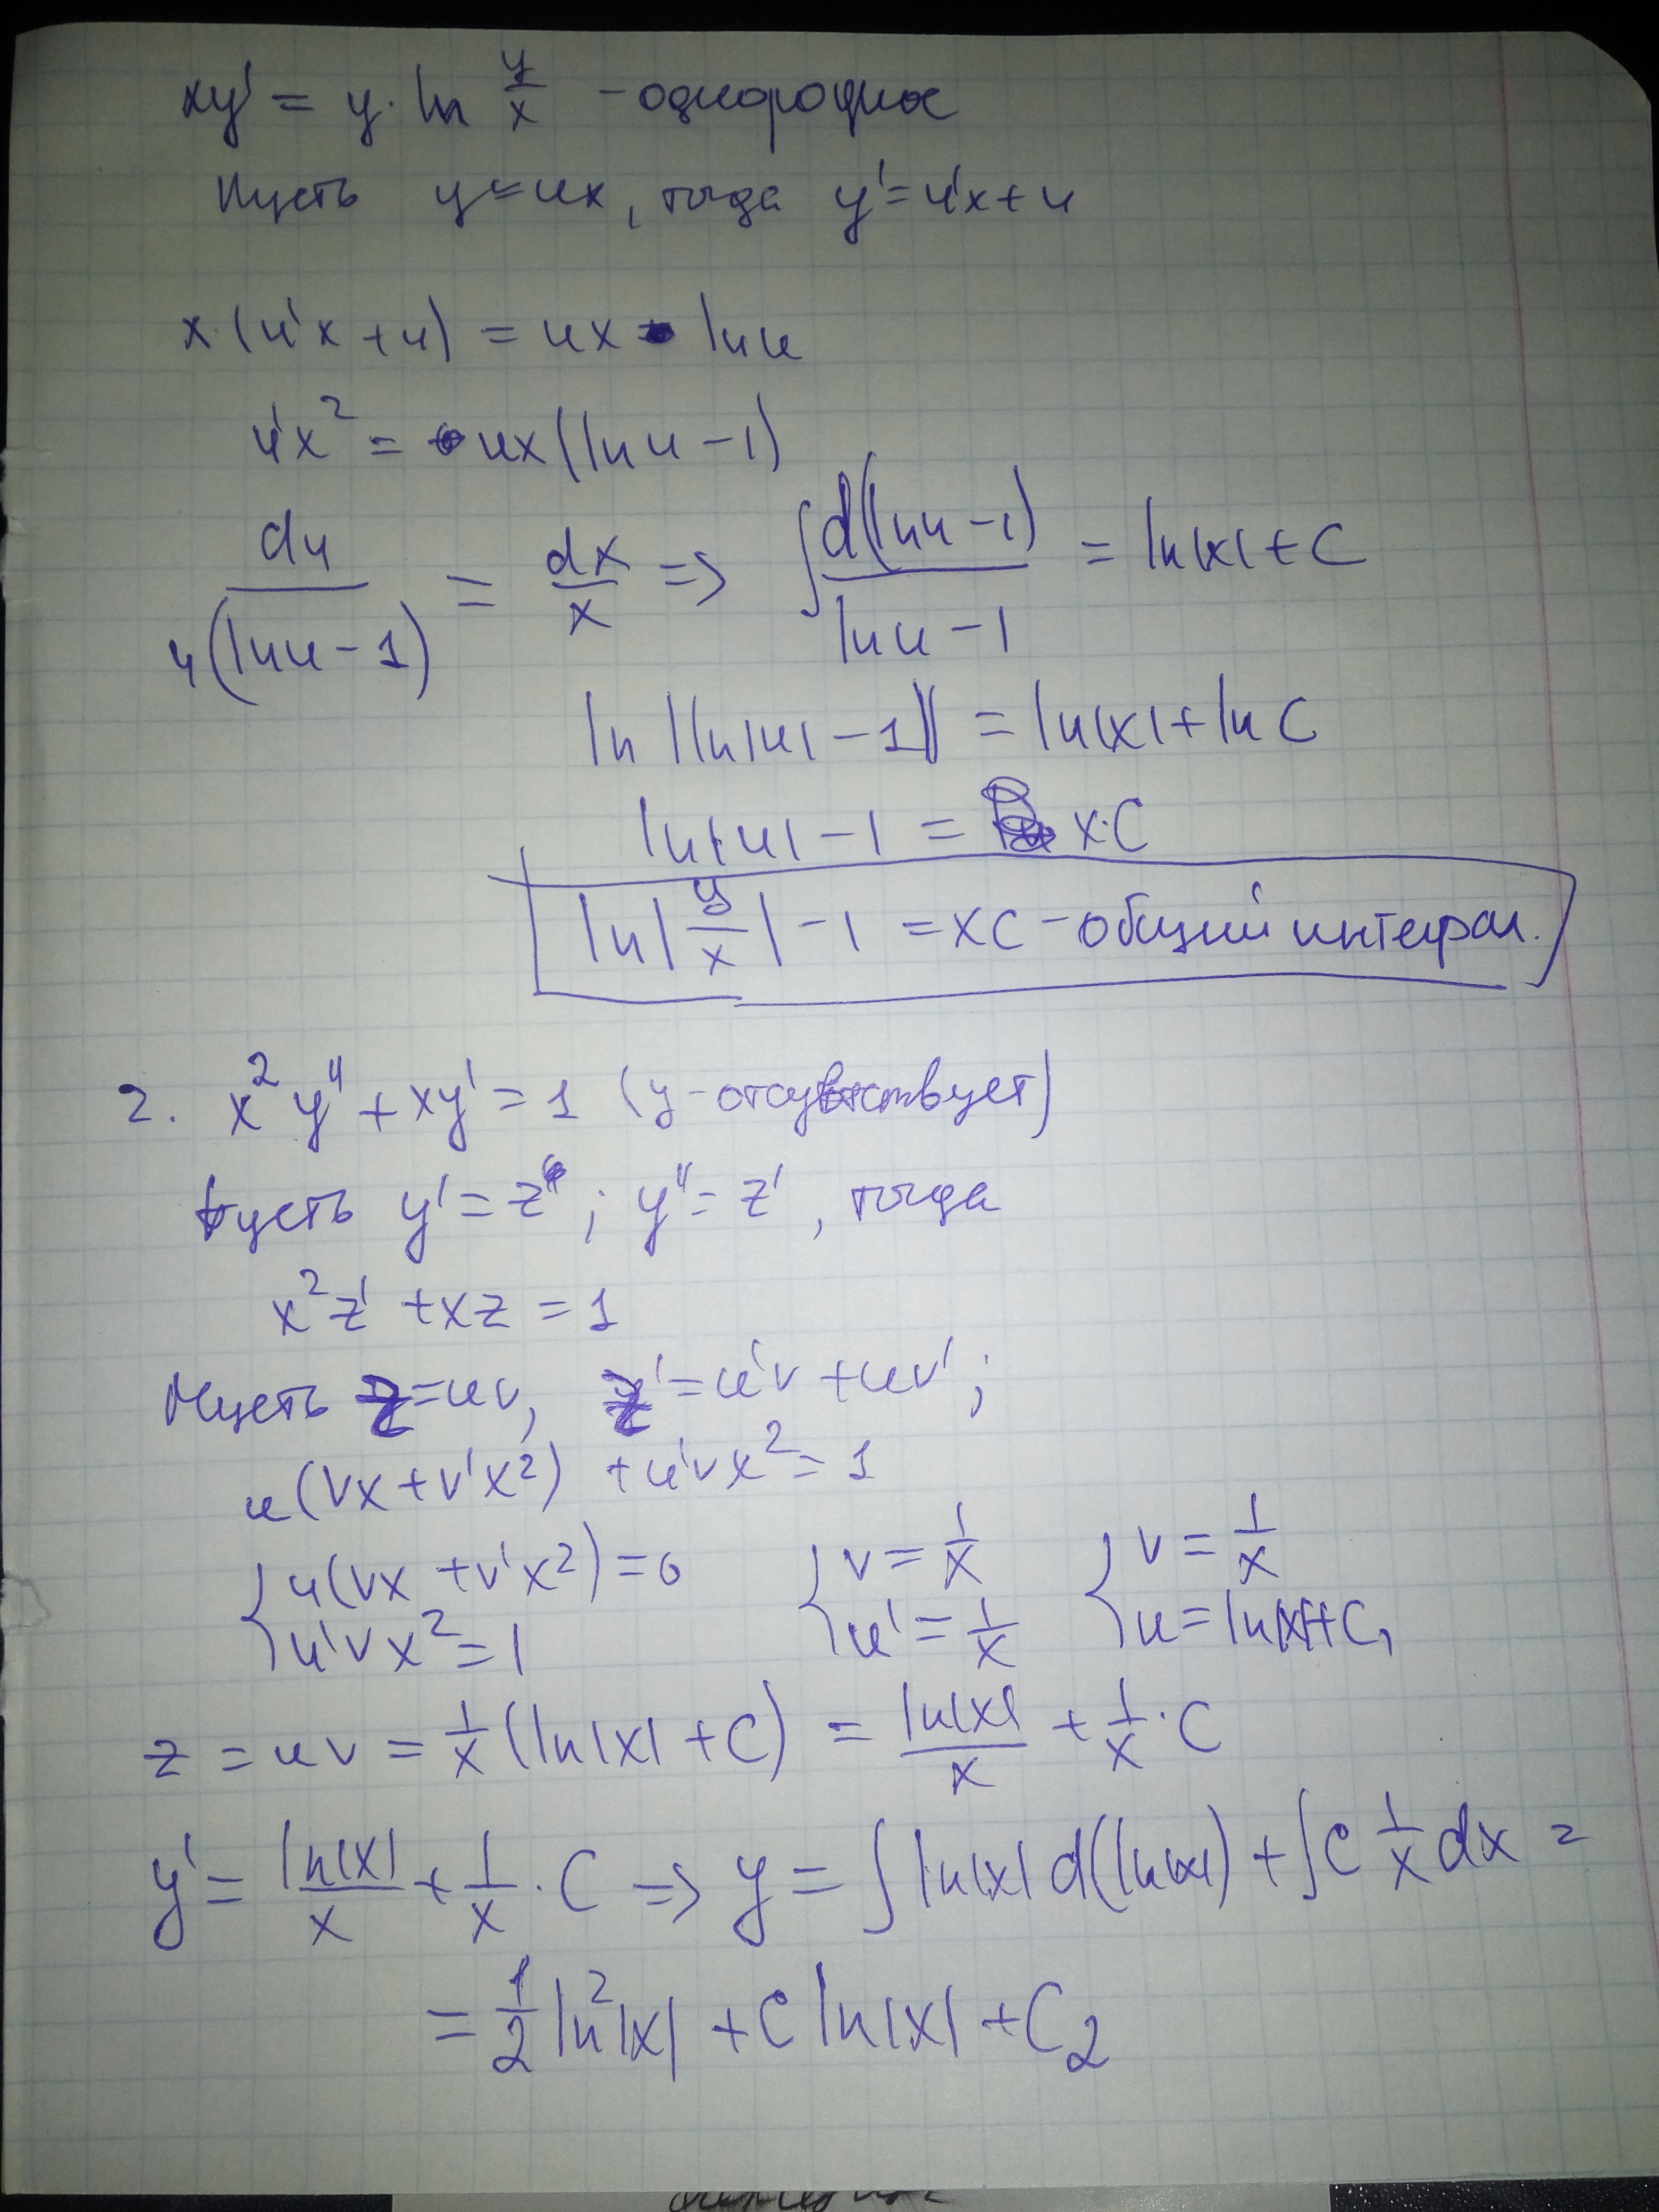 xy' = y · ln y/x – однородное
Пусть y = ux, тогда y' = u'x + u
x · (u'x + u) = ux ln u
u'x² = ux(ln u – 1)
du / u(ln u – 1) = dx/x ⇒ ∫ d(ln u – 1) / ln u – 1 = ln|x| + C
ln |ln|u| – 1| = ln|x| + ln C
ln|u| – 1 = x · C
ln|y/x| – 1 = xC – общий интеграл.
2. x²y'' + xy' = 1 (y – отсутствует)
Пусть y' = z ; y'' = z', тогда
x²z' + xz = 1
Пусть z = uv, z' = u'v + uv';
u(vx + v'x²) + u'vx² = 1
{ u(vx + v'x²) = 0 { v = 1/x { v = 1/x
u'vx² = 1 u' = 1/x u = ln|x| + C₁
z = uv = 1/x (ln|x| + C) = ln|x|/x + 1/x · C
y' = ln|x|/x + 1/x · C ⇒ y = ∫ ln|x| d(ln|x|) + ∫ C 1/x dx =
= 1/2 ln²|x| + C ln|x| + C₂